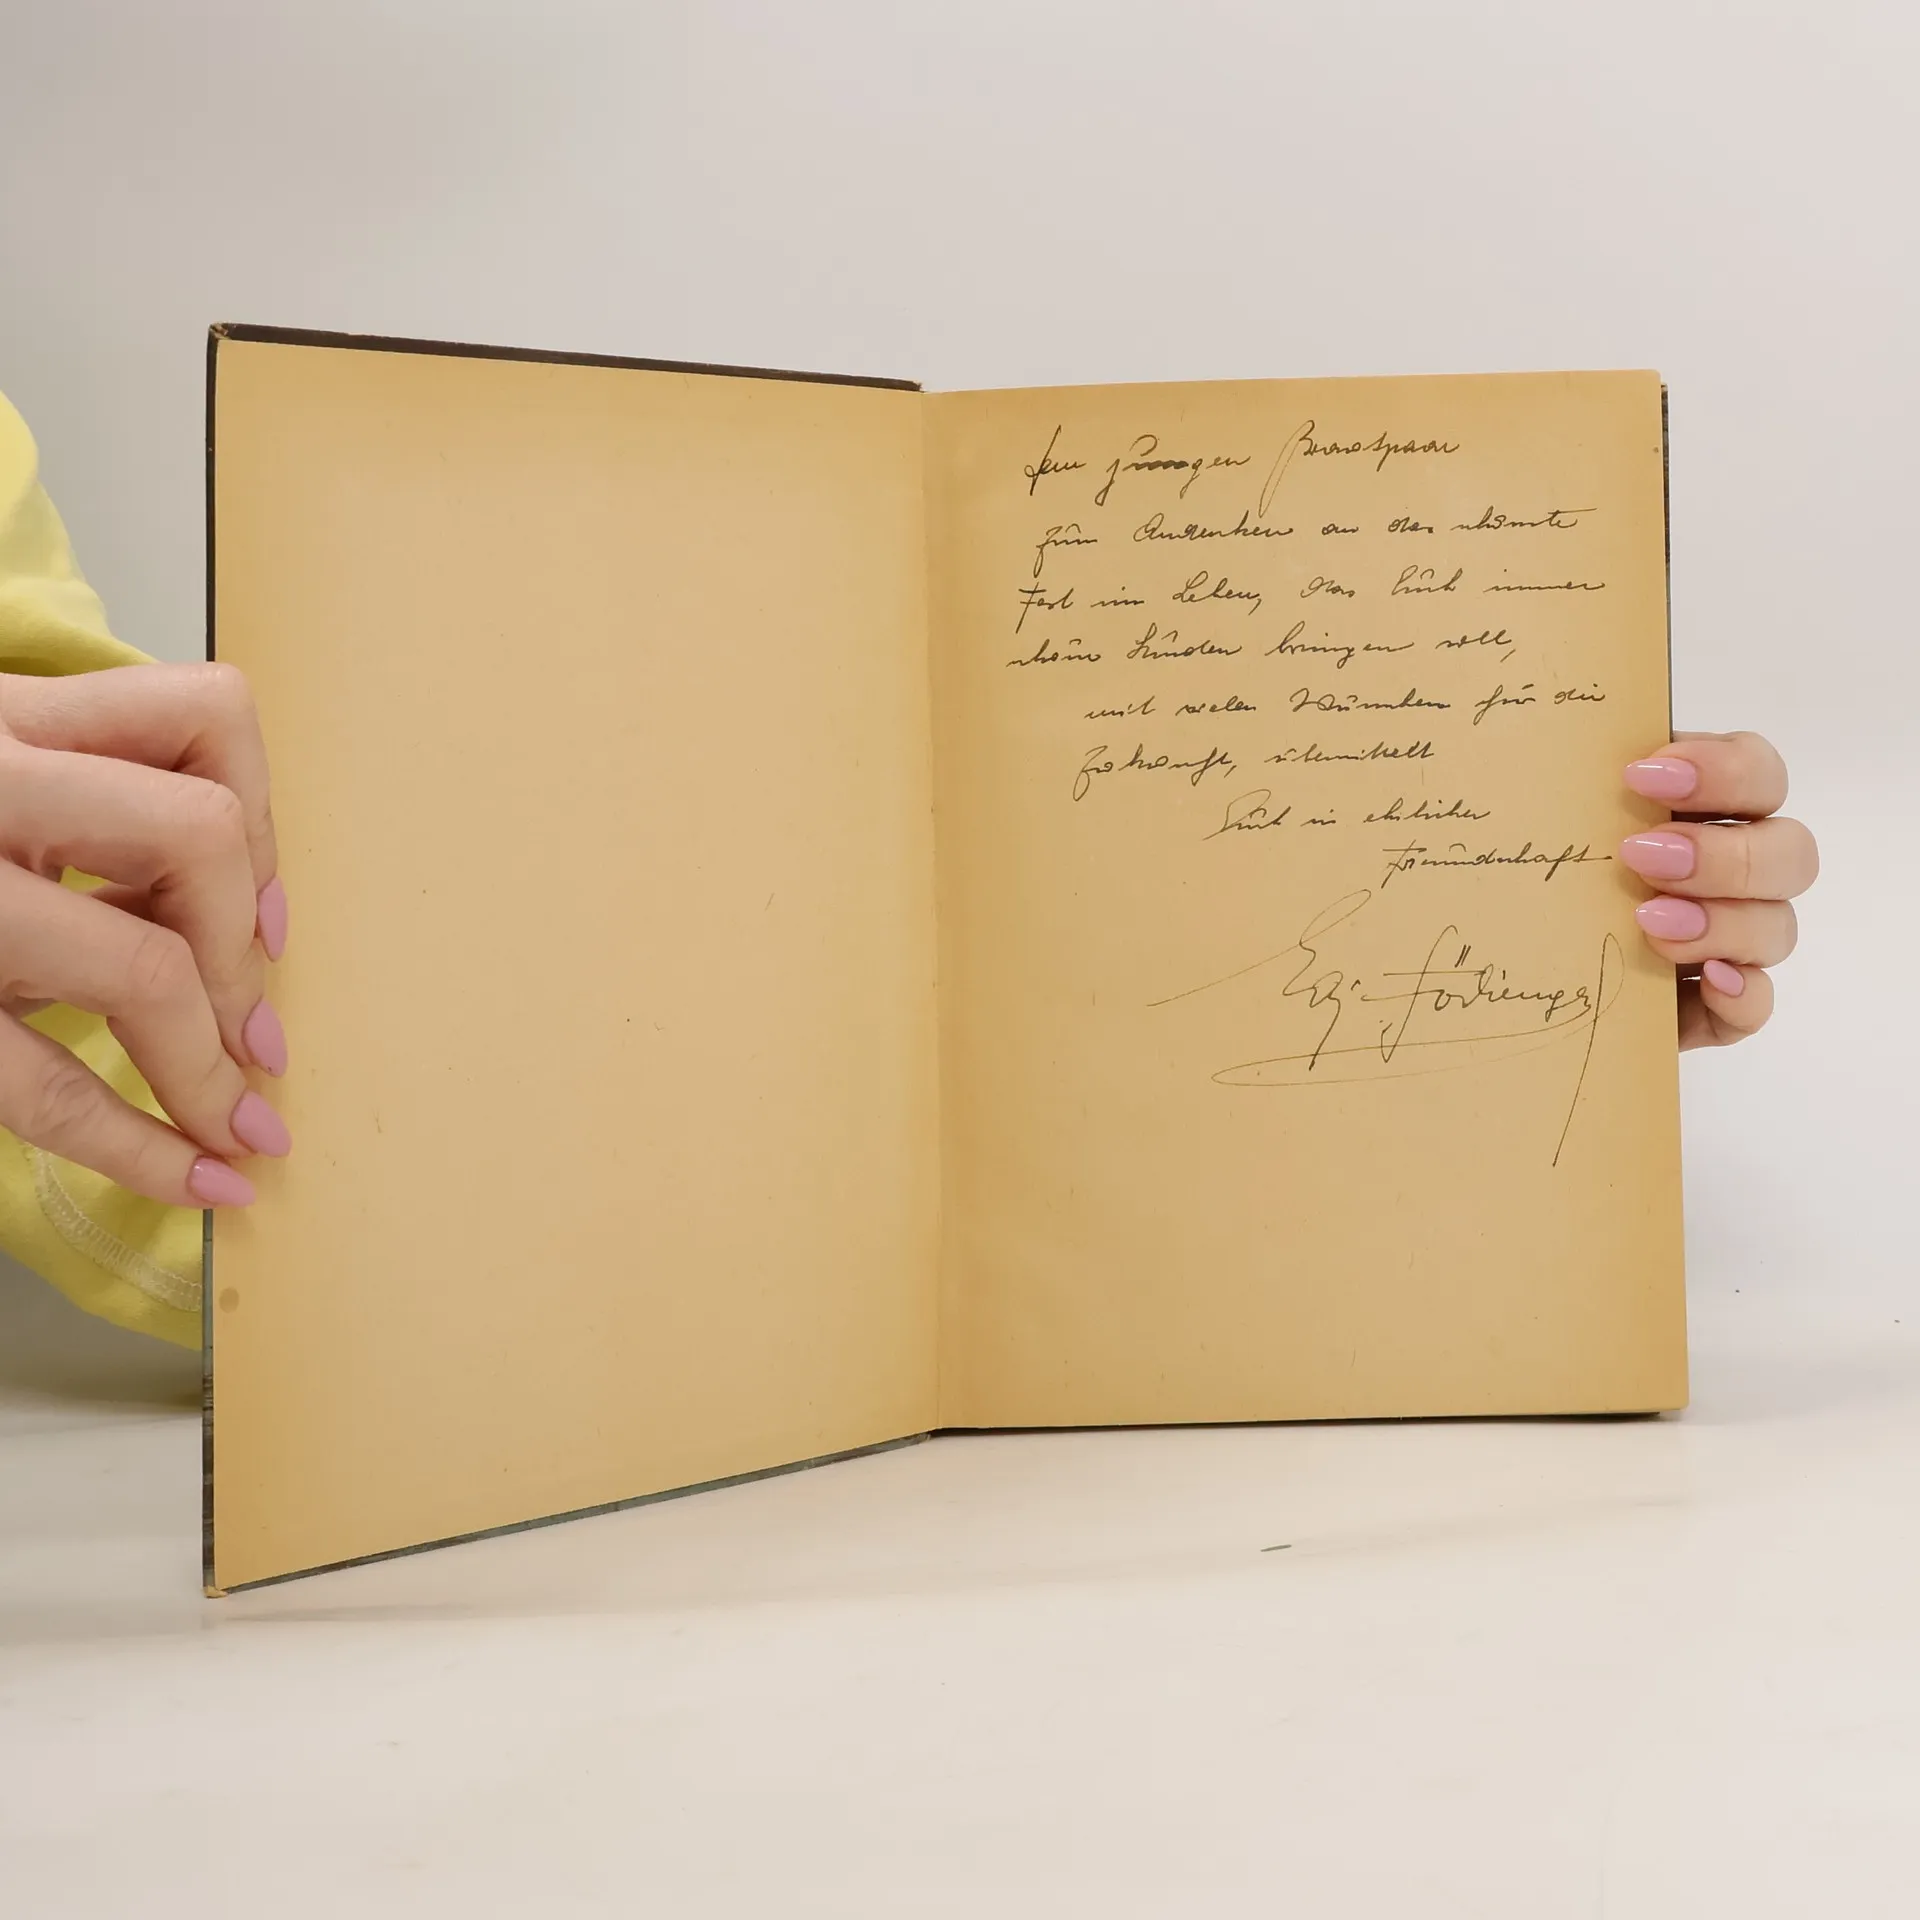 Dem jungen Brautpaar
zum Andenken an das schönste
Fest im Leben, das Euch immer
schöne Stunden bringen soll,
mit vielen Wünschen für die
Zukunft, übermittelt
Euch in ehrlicher
Freundschaft